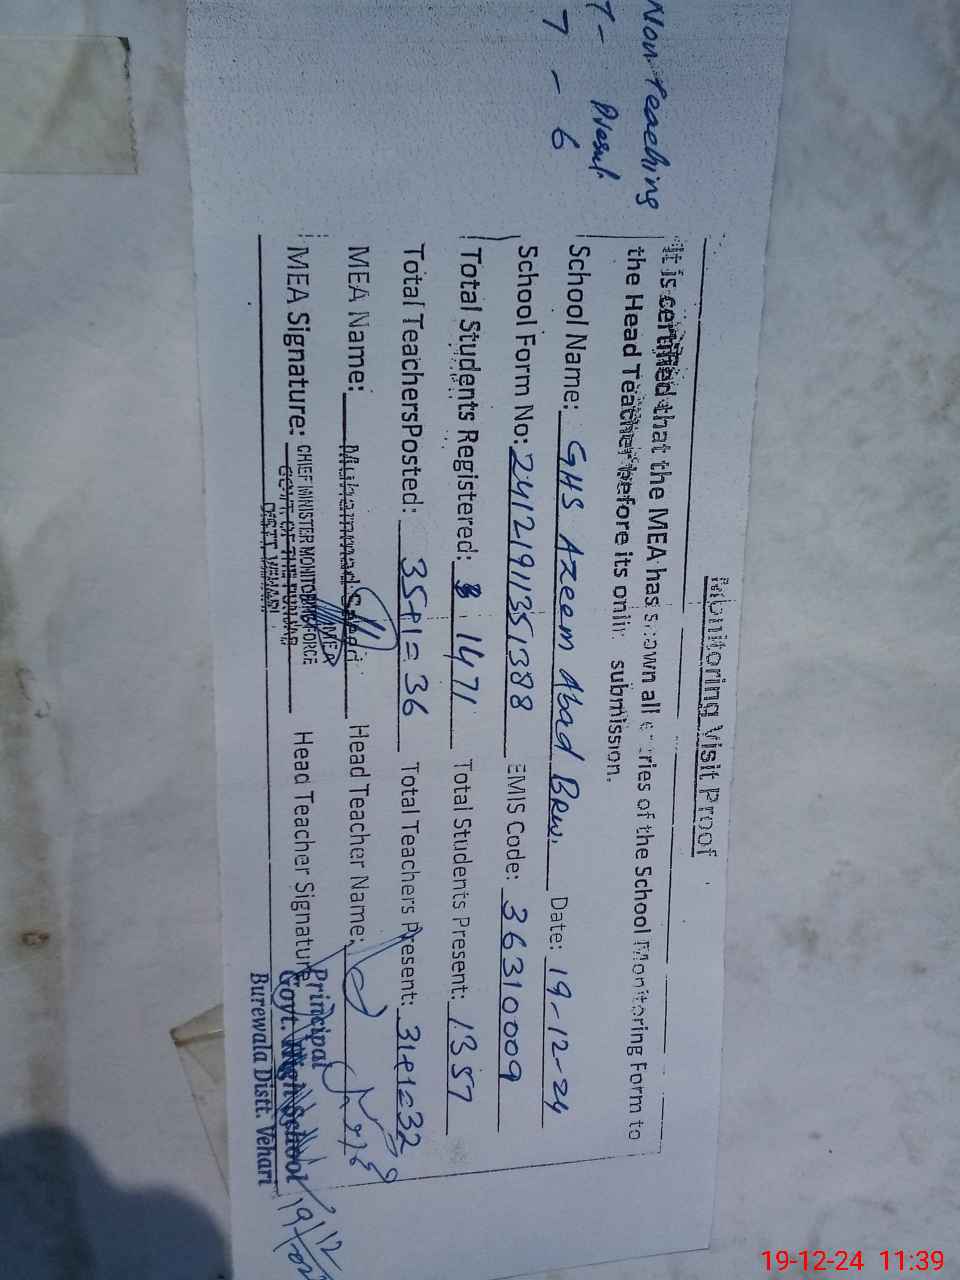 Non teaching
7 - Present
7 - 6
Monitoring Visit Proof
It is certified that the MEA has shown all entries of the School Monitoring Form to
the Head Teacher before its online submission.
School Name: GHS Azeem Abad Brw. Date: 19-12-24
School Form No: 24121911351388 EMIS Code: 36310009
Total Students Registered: 1471 Total Students Present: 1357
Total TeachersPosted: 35+1=36 Total Teachers Present: 31+1=32
MEA Name: Muhammad Saeed Head Teacher Name:
MEA Signature: CHIEF MINISTER MONITORING FORCE Head Teacher Signature
GOVT. OF THE PUNJAB
DISTT. VEHARI
Principal
Govt. High School
Burewala Distt. Vehari
19-12-24 11:39